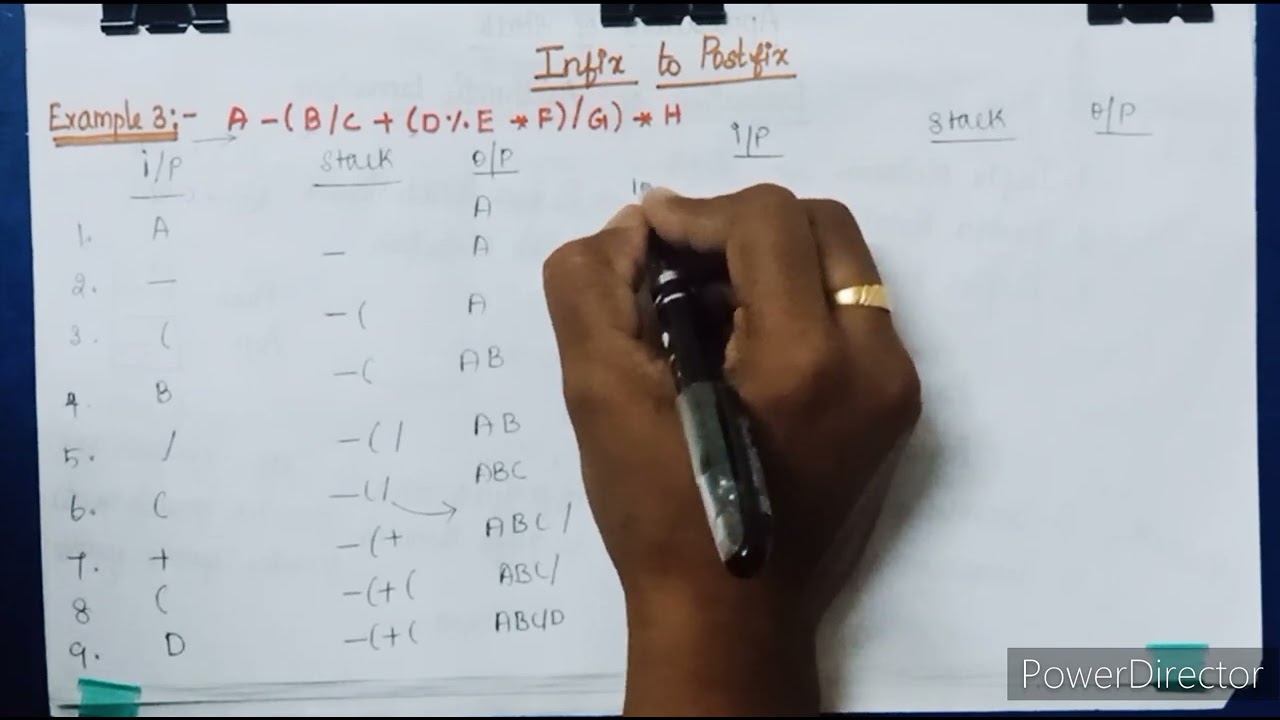 Infix to Postfix
Example 3:- A - ( B / C + ( D % E * F ) / G ) * H
i/P Stack O/P
1. A A
2. - - A
3. ( - ( A
4. B - ( A B
5. / - ( / A B
6. C - ( / A B C
7. + - ( + A B C /
8 ( - ( + ( A B C /
9. D - ( + ( A B C / D
i/P Stack O/P
10
PowerDirector